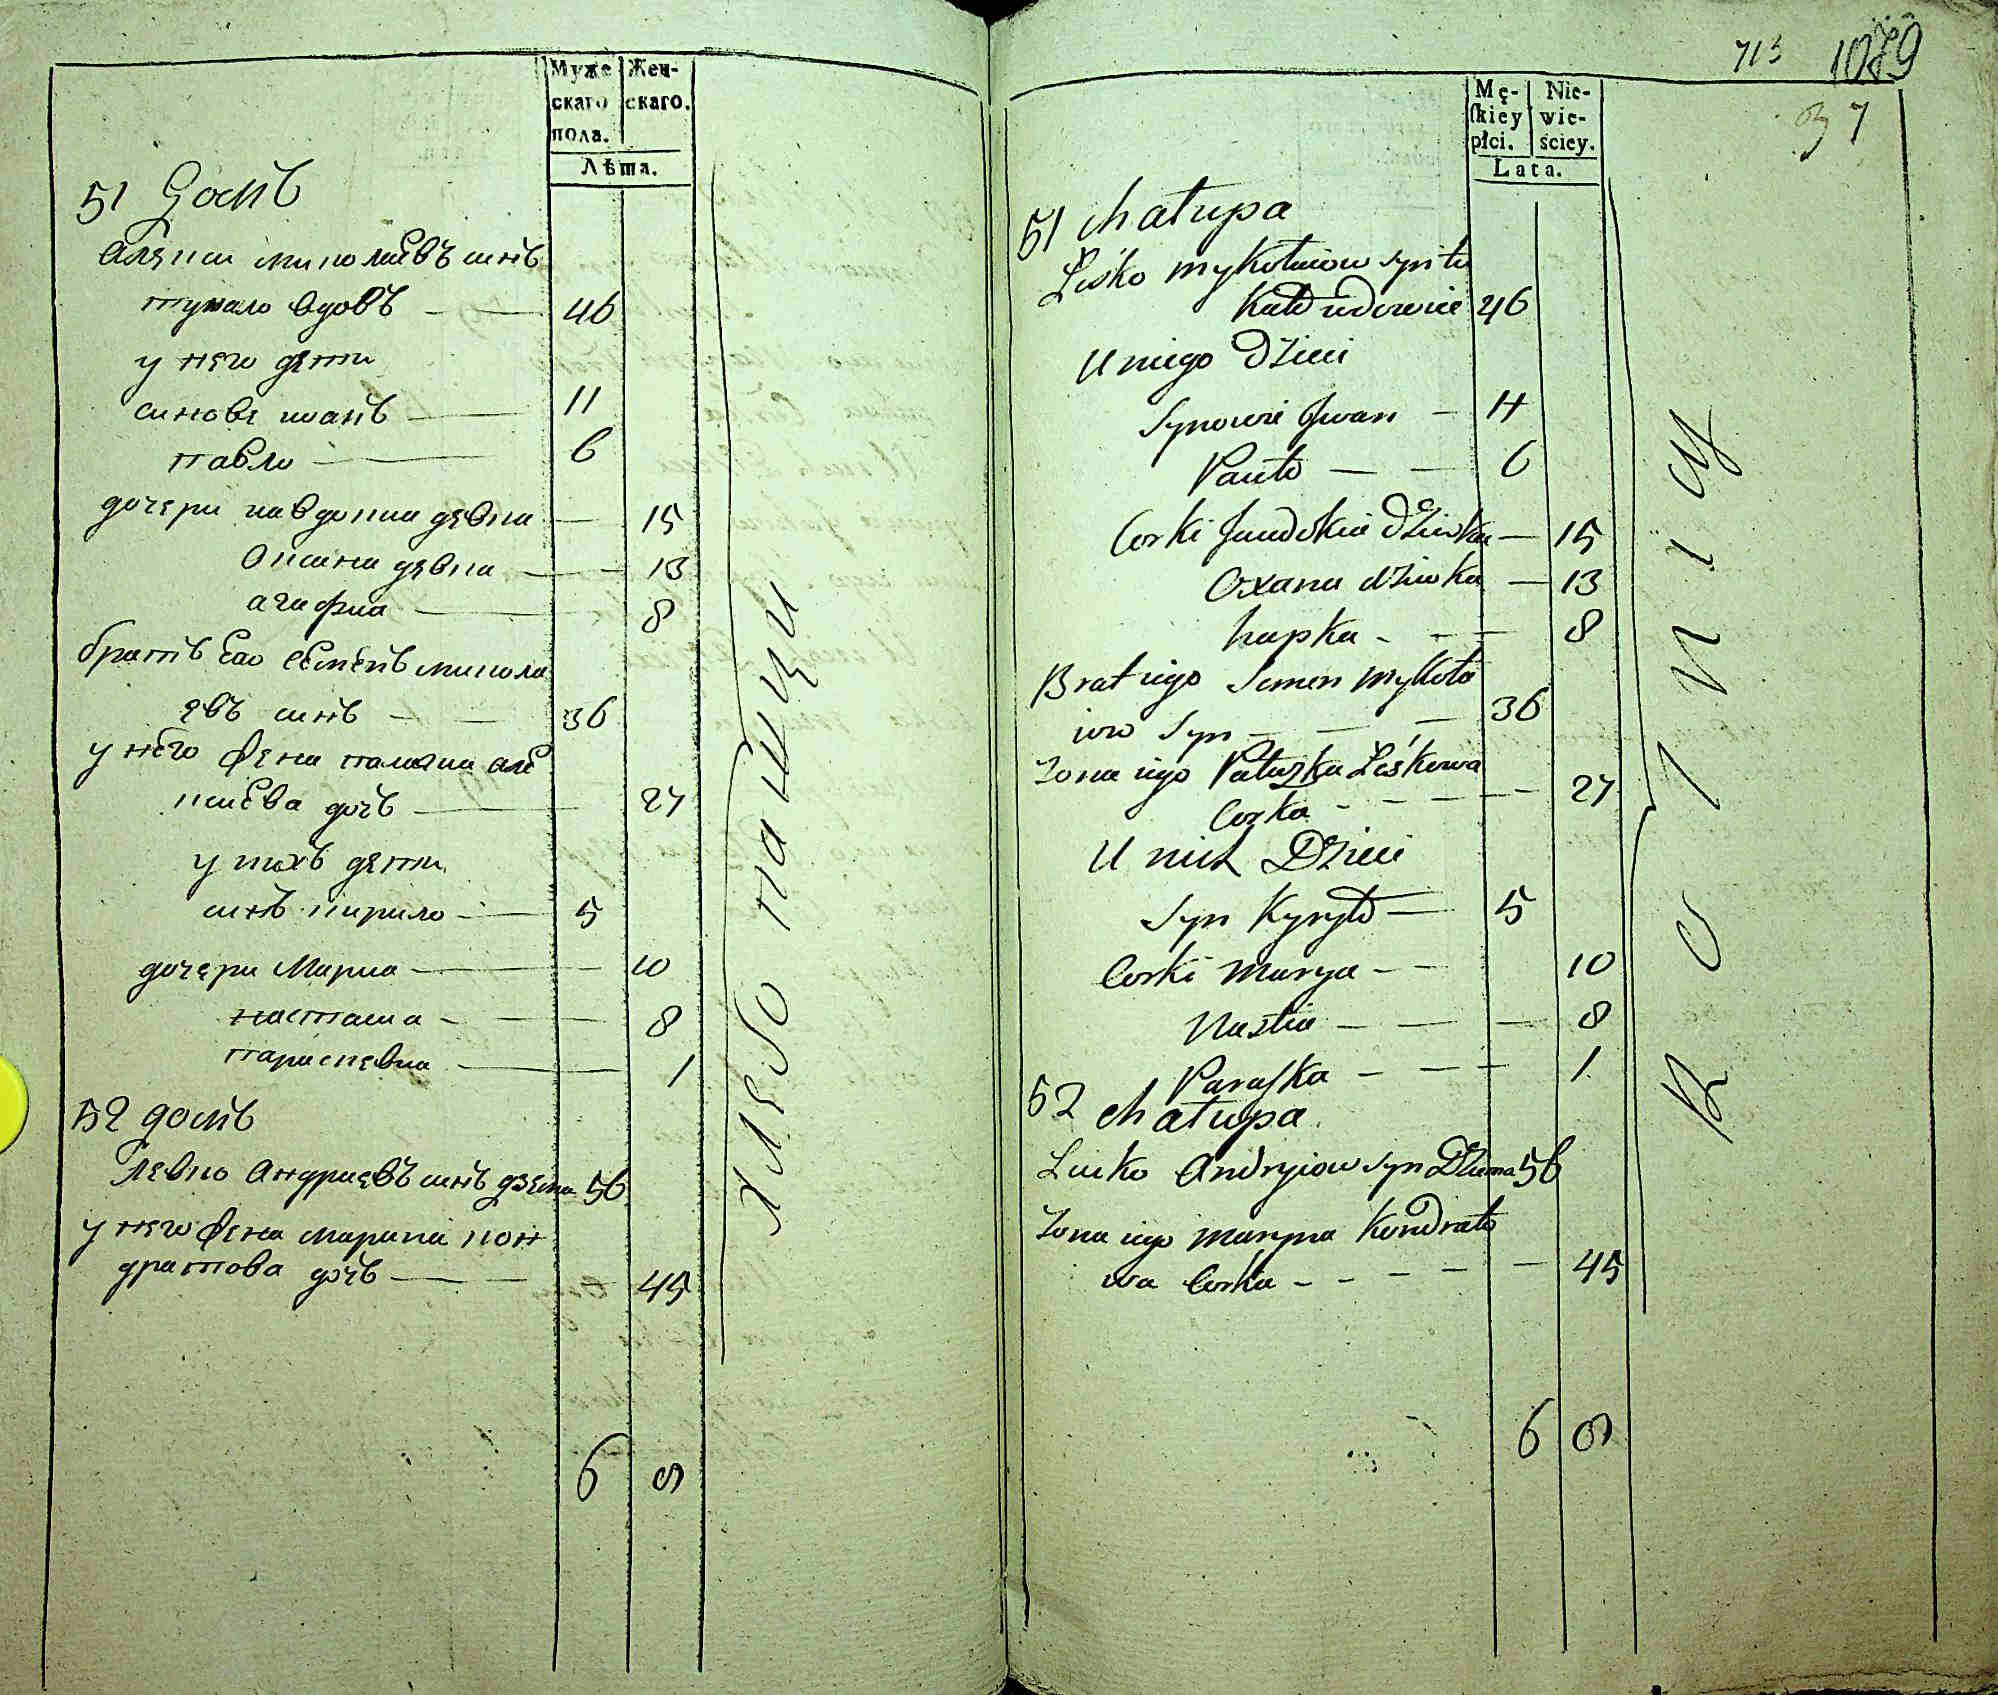 Муже
скаго
пола.
Жен-
скаго.
Лѣта.
51 домъ
Алекси миколаевъ синъ
тукало вдовъ — 46
у него дети
синове иванъ — 11
павло — 6
дочери навдокиа девка — 15
Оксана девка — 13
агафиа — 8
братъ Его Семенъ микола
евъ синъ — 36
у него Жена палагиа але
ксиева дочъ — 27
у нихъ дети
синъ кирило — 5
дочери Мариа — 10
насташа — 8
параскевиа — 1
52 домъ
Левко Андриевъ синъ дзема 56
у него Жена марина кон
дратова дочъ — 45
6 9
хлебопашци
713 1079
37
Mę-
skiey
płci.
Nie-
wie-
ściey.
Lata.
51 chałupa
Leśko Mykołaiow Syn tu
kało wdowiec 46
U niego Dzieci
Synowie Jwan — 11
Pawło — 6
Corki Jawdokia Dziewka — 15
Oxana dziewka — 13
hapka — 8
Brat iego Semen Mykoła
iow Syn — 36
Zona iego Pałazka Leśkowa
Corka — 27
U nich Dzieci
Syn Kyryło — 5
Corki Marya — 10
Nastia — 8
Paraska — 1
52 chałupa
Lewko Andryiow Syn Dzema 56
Zona iego Maryna Kondrato
wa Corka — 45
6 9
Rolnicy